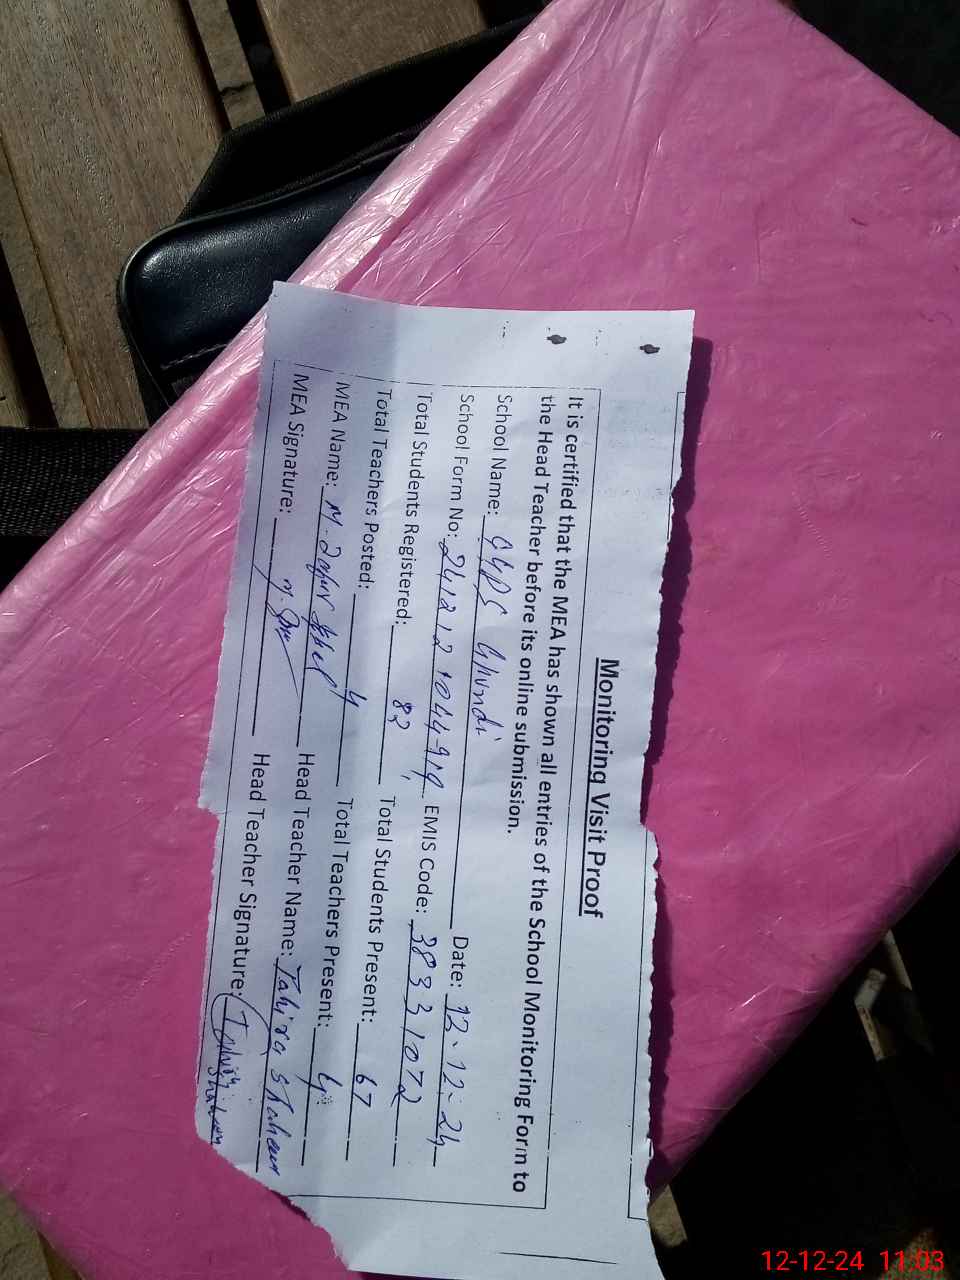 Monitoring Visit Proof
It is certified that the MEA has shown all entries of the School Monitoring Form to
the Head Teacher before its online submission.
School Name: GGPS Ghundi Date: 12.12.24
School Form No: EMIS Code: 38331072
Total Students Registered: 82 Total Students Present: 67
Total Teachers Posted: 4 Total Teachers Present: 4
MEA Name: M. Head Teacher Name: Tahira Shaheen
MEA Signature: Head Teacher Signature: Tahira
Shaheen
12-12-24 11:03